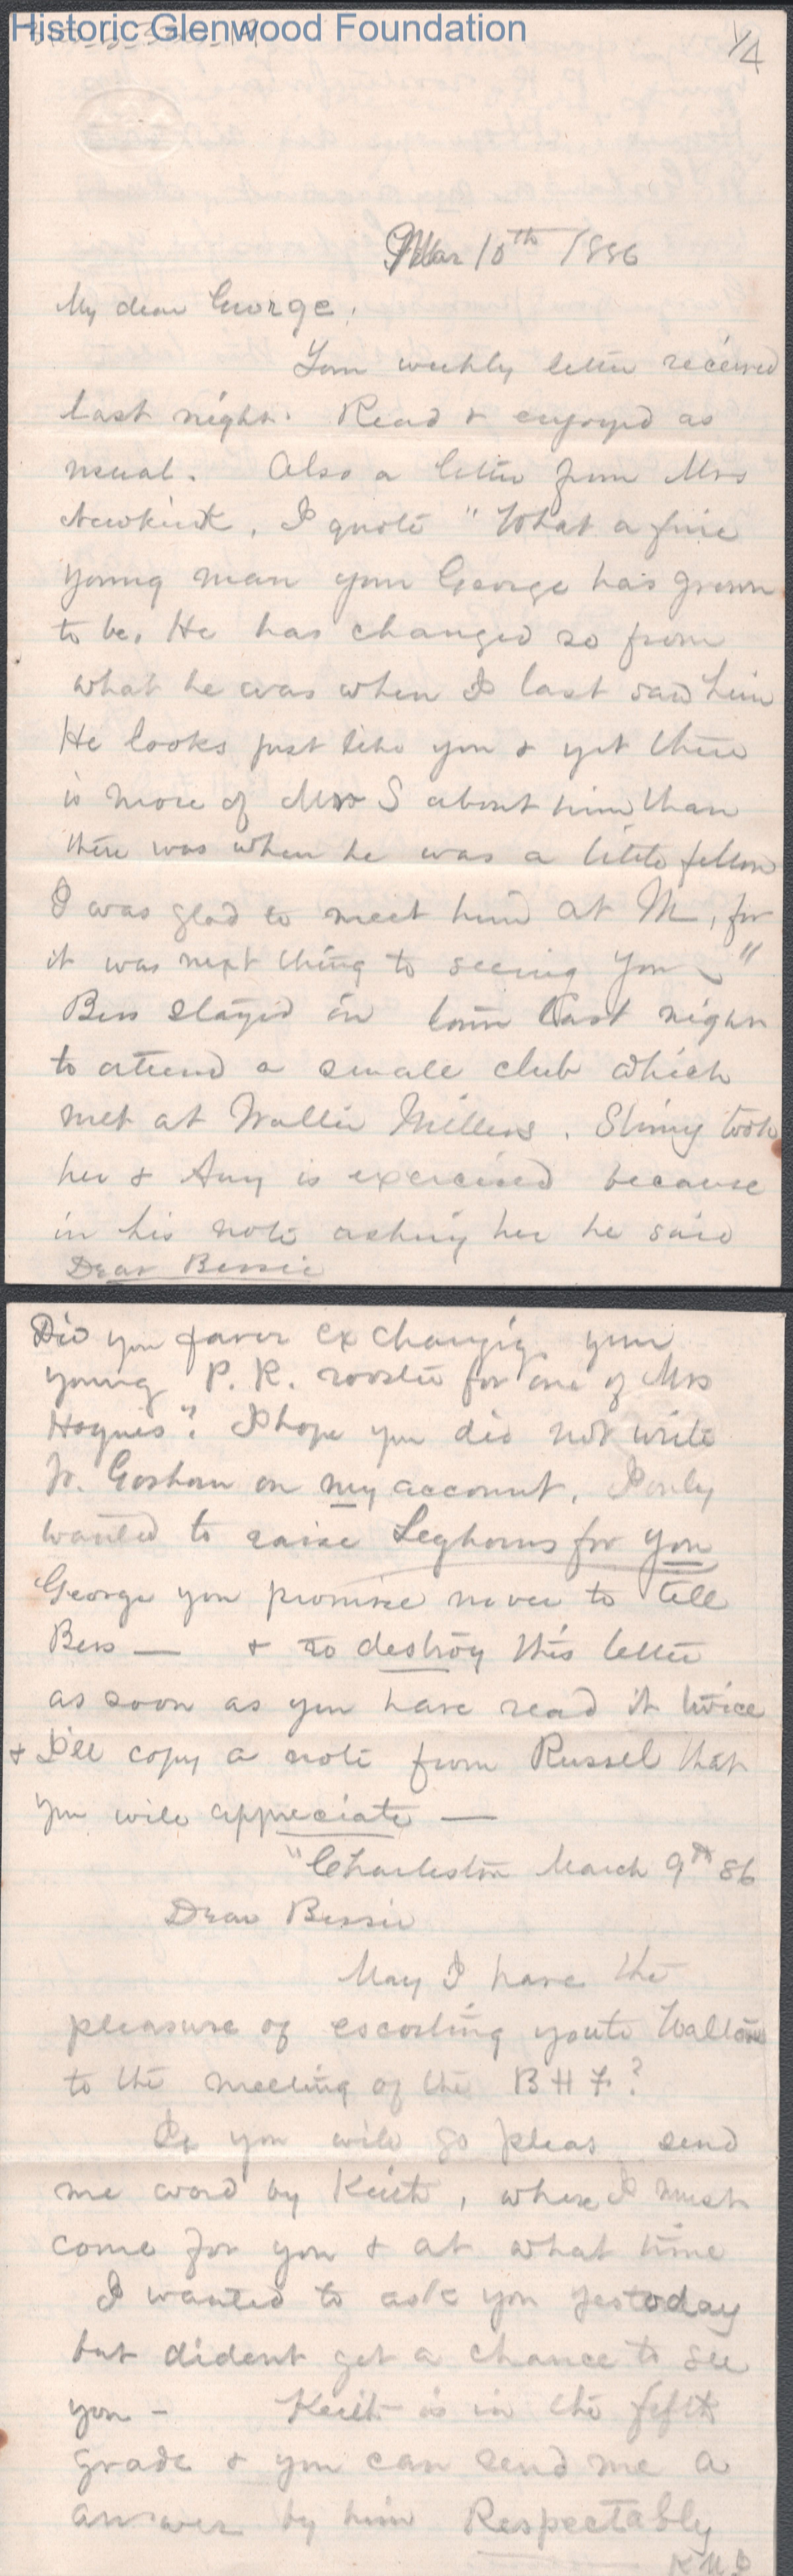 Historic Glenwood Foundation
1/4
Mar 10th 1886
My dear George,
Your weekly letter received
last night. Read & enjoyed as
usual. Also a letter from Mrs
Newkirk, I quote "What a fine
young man your George has grown
to be. He has changed so from
what he was when I last saw him
He looks just like you & yet there
is more of Mr S about him than
there was when he was a little fellow
I was glad to meet him at M, for
it was next thing to seeing you"
Bess stayed in town last night
to attend a small club which
met at Wallie Millers. Slimy took
her & Amy is exercised because
in his note asking her he said
Dear Bessie
Did you favor exchanging your
young P. R. rooster for one of Mrs
Hognes"? I hope you did not write
Gorham on my account, I only
wanted to raise Leghorns for you
George you promise never to tell
Bess — & to destroy this letter
as soon as you have read it twice
& I'll copy a note from Russel that
you will appreciate —
"Charleston March 9th 86
Dear Bessie
May I have the
pleasure of escorting you to Waltons
to the meeting of the B H F?
If you will go pleas send
me word by Keith, where I must
come for you & at what time
I wanted to ask you yestoday
but dident get a chance to see
you - Keith is in the fifth
grade & you can send me a
answer by him Respectably